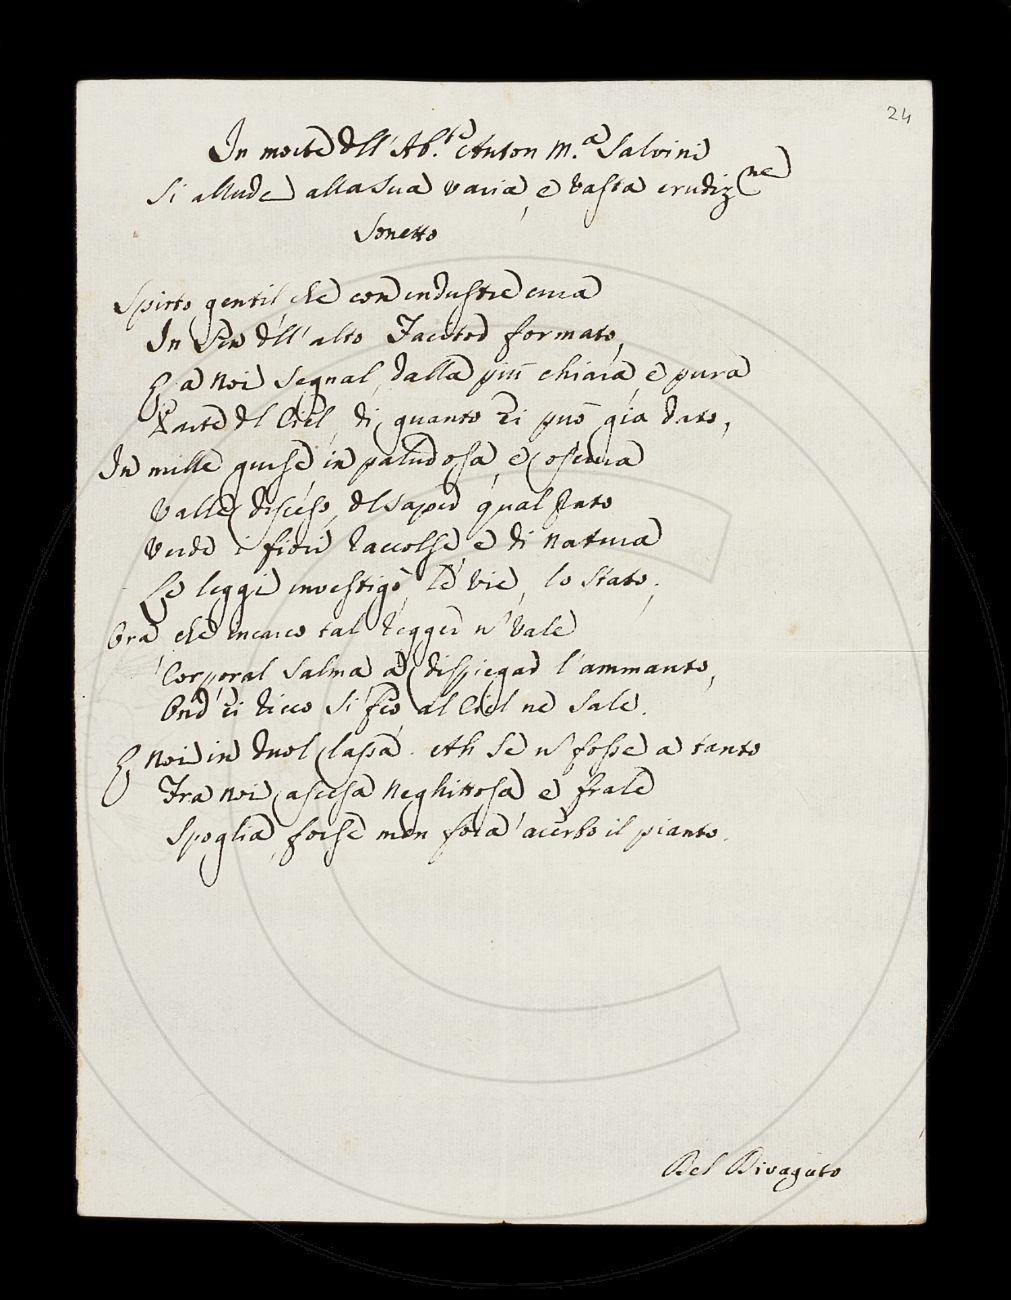 24
In morte dell' Ab.te Anton M.a Salvini
Si allude alla sua varia, e vasta erudiz.ne
Sonetto
Spirto gentil, che con industre cura
In sen dell' alto Facitor formato,
E a noi segnal dalla più chiara, e pura
Parte del Ciel, di quanto Ei può già dato,
In mille guise in paludosa, e oscura
Valle disceso, del saper qual prato
Verde i fiori raccolse, e di natura
Le leggi investigò, le vie, lo stato.
Ora che incarco tal regger n' vale
Corporal salma a dispiegar l' ammanto,
Ond' Ei ricco si feo, al Ciel ne sale.
E noi in duol lassa. Ah se n' fosse a tanto
Fra noi ascesa neghittosa e frale
Spoglia, forse men fora acerbo il pianto.
Del Divagato